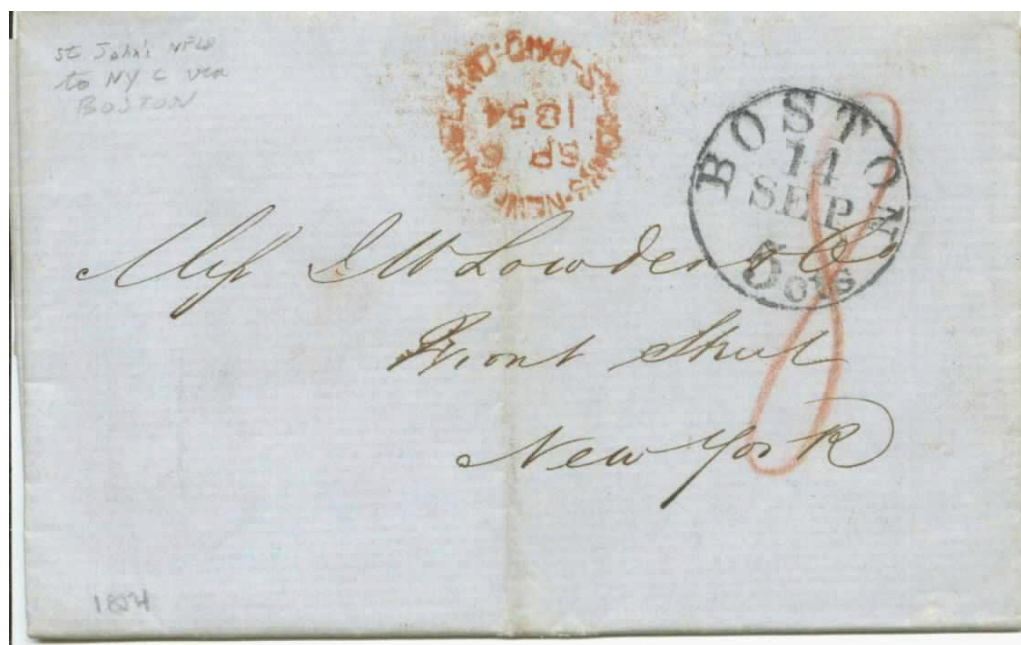 St John's NFLD
to NYC via
BOSTON
ST. JOHN'S-NEWFOUNDLAND
PAID
SP 6
1854
BOSTON
14
SEP
5 cts
8
Mess J W Lowden & Co
Front Street
New York
1854